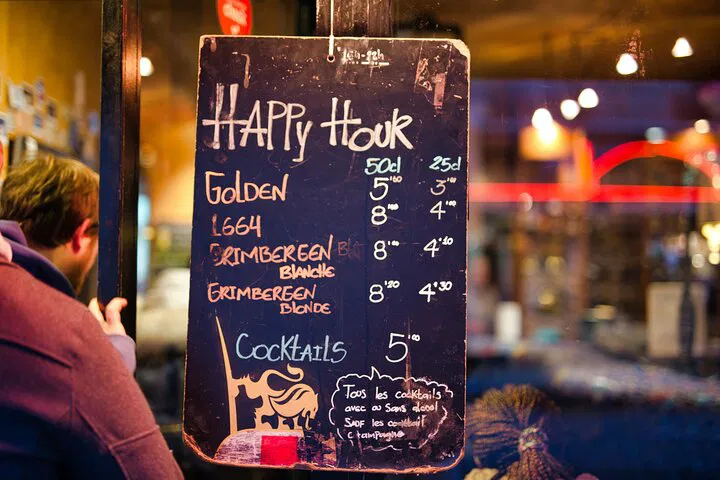 Happy Hour
50cl 25cl
Golden 5'00 3'00
1664 8'00 4'00
Grimbergen Blanche 8'00 4'10
Grimbergen Blonde 8'20 4'30
Cocktails 5'00
Tous les cocktails
avec ou sans alcool
sauf les cocktail
champagne